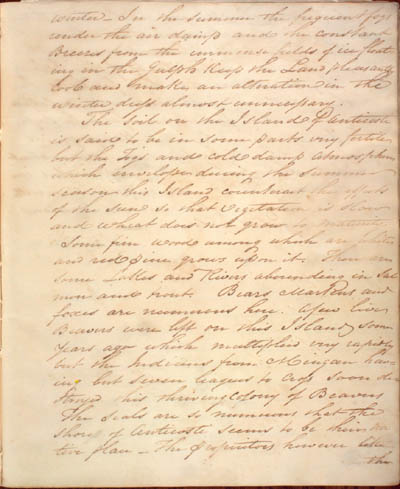 winter - In the summer the frequent fogs
render the air damp and the constant
Breezes from the immense fields of ice float
ing in the Gulph keep the Land pleasantly
Cool and make an alteration in the
winter dress almost unnecessary.
The Soil on the Island of Anticosti
is said to be in some parts very fertile
but the Fogs and cold damp atmosphere
which envelopes during the Summer
season this Island counteract the effects
of the sun so that vegetation is slow
and wheat does not grow to maturity
Some fine wood among which are white
and red Pine grows upon it. There are
some Lakes and Rivers abounding in Sal
mon and trout. Bears Martens and
foxes are numerous here. A few live
Beavers were left on this Island some
years ago which multiplied very rapidly
but the Indians from Mingan hav-
ing but seven leagues to cross soon de
stroyed this thriving colony of Beavers
The seals are so numerous that the
shore of Anticosti seems to be their na
tive place - The proprietors however take
the